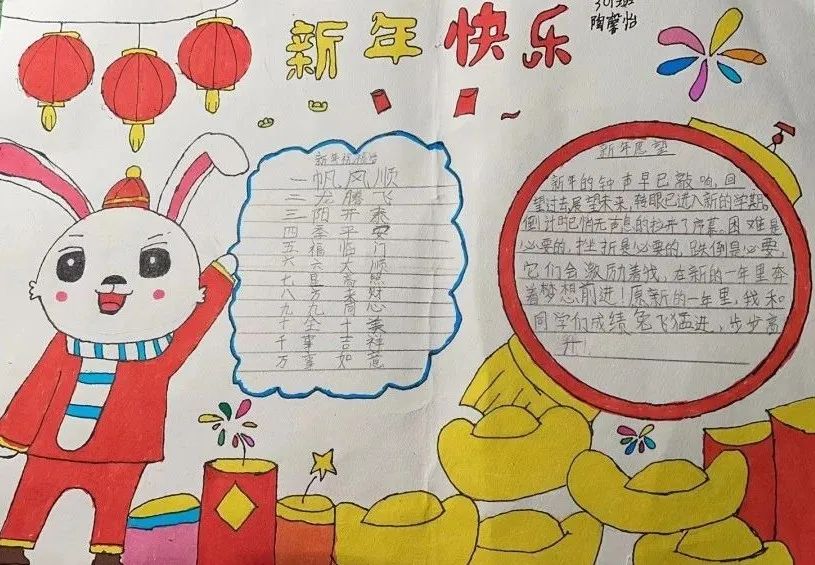 新年快乐
301班
陶馨怡
新年祝福语
一帆风顺
二龙腾飞
三阳开泰
四季平安
五福临门
六六大顺
七星高照
八方财
九九心
十全十美
千事吉祥
万事如意
新年愿望
新年的钟声早已敲响,回
望过去展望未来,转眼已进入新的学期,
倒计时已悄无声息的拉开了序幕。困难是
必要的,挫折是必要的,跌倒是必要,
它们会激励着我,在新的一年里奔
着梦想前进!原新的一年里,我和
同学们成绩兔飞猛进,步步高
升!